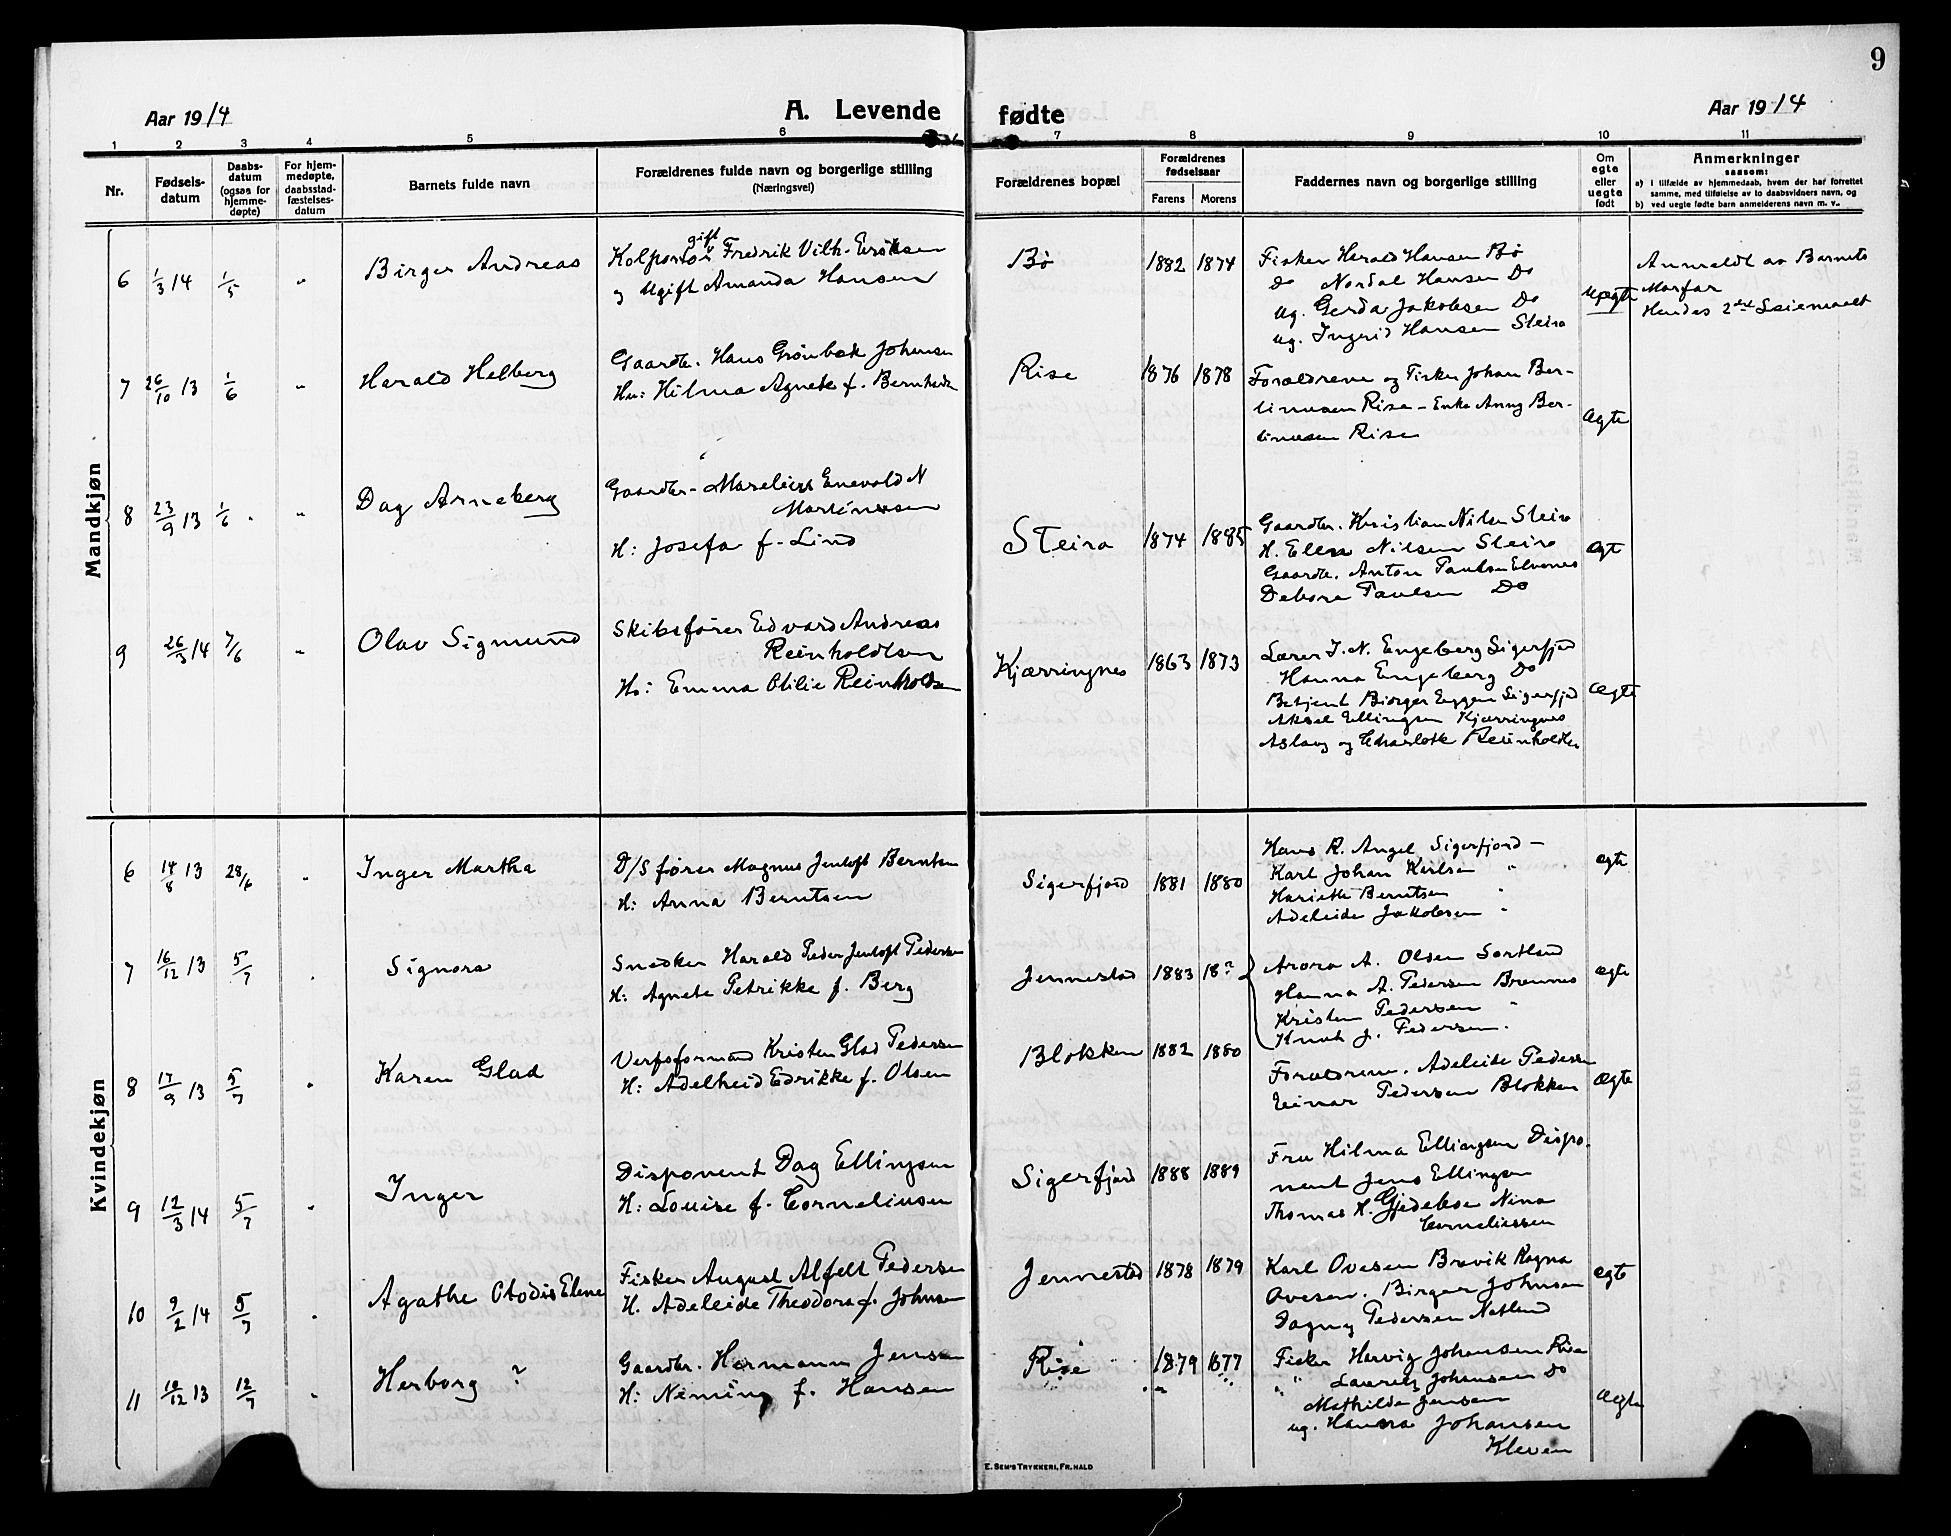 9
Aar 1914
A. Levende
fødte
Aar 1914
1 2 3 4 5 6 7 8 9 10 11
Nr.
Fødsels-
datum
Daabs-
datum
(ogsaa for
hjemme-
døpte)
For hjem-
medøpte,
daabsstad-
fæstelses-
datum
Barnets fulde navn
Forældrenes fulde navn og borgerlige stilling
(Næringsvei)
Forældrenes bopæl
Forældrenes
fødselsaar
Farens
Morens
Faddernes navn og borgerlige stilling
Om
egte
eller
uegte
født
Anmerkninger
saasom:
a) i tilfælde av hjemmedaab, hvem der har forrettet
samme, med tilføielse av to daabsvidners navn, og
b) ved uegte fødte barn anmelderens navn m. v.
Mandkjøn
6 1/3 14 1/5 "
Birger Andreas
gift
Kolportør Fredrik Vilh. Eriksen
og Ugift Amanda Hansen
Bø
1882 1874
Fisker Harald Hansen Bø
do Nordal Hansen Do
ug. Gerda Jakobsen Do
ug. Ingerid Hansen Steiro
uægte
Anmeldt av Barnets
Morfar
Hendes 2det Leiermaalt
7 26/10 13 1/6 "
Harald Helberg
Gaardbr. Hans Grønbæk Johansen
Hu: Hilma Agnete f. Berntsen
Rise
1876 1878
Forældrene og Fisker Johan Ber-
linusen Rise - Enke Anny Ber-
linusen Rise
ægte
8 23/9 13 1/6 "
Dag Arneberg
Gaardbr. Marelius Enevold N
Martinussen
H: Josefa f. Lind
Steiro
1874 1885
Gaardbr. Kristian Nilsen Steiro
H. Elen Nilsen Steiro
Gaardbr. Anton Paulsen Elvenes
Debora Paulsen Do
ægt
9 26/3 14 7/6 "
Olav Sigmund
Skibsfører Edvard Andreas
Reinholdtsen
Hs: Emma Otilie Reinholdtsen
Kjærringnes
1863 1873
Lærer J. N. Engeberg Sigerfjord
Hanna Engeberg Do
Betjent Birger Eggen Sigerfjord
Aksel Ellingsen Kjærringnes
Aslaug og Charlotte Reinholdtsen
Ægte
Kvindekjøn
6 14/8 13 28/6 "
Inger Martha
D/S fører Magnus Jentoft Berntsen
H: Anna Berntsen
Sigerfjord
1881 1880
Hans R. Angel Sigerfjord -
Karl Johan Karlsen "
Hariette Berntsen "
Adeleide Jakobsen "
ægte
7 16/12 13 5/7
Signora
Snedker Harald Peder Jentoft Pedersen
H: Agnete Petrikke f. Berg
Jennestad
1883 18?
Arora A. Olsen Sortland
Hanna A. Pedersen Brennes
Kristen Pedersen "
Knut J. Pedersen.
ægte
8 17/9 13 5/7
Karen Glad
Verfsformand Kristen Glad Pedersen
H: Adelheid Edrikke f. Olsen
Blokken
1882 1880
Forældrene. Adeleide Pedersen
Einar Pedersen Blokken
Ægte
9 12/3 14 5/7 "
Inger
Disponent Dag Ellingsen
H: Louise f. Corneliusen
Sigerfjord
1888 1889
Fru Hilma Ellingsen Dispo-
nent Jens Ellingsen
Thomas H. Gjedebo Nina
Corneliussen
10 9/2 14 5/7
Agathe Otodis Elene
Fisker August Alfelt Pedersen
H. Adeleide Theodora f. Johnsen
Jennestad
1878 1879
Karl Ovesen Brevik Ragna
Ovesen. Birger Johnsen
Dagny Pedersen Natland
ægte
11 10/12 13 12/7 "
Herborg ?
Gaardbr. Hermann Jensen
H: Neming f. Hansen
Rise
1879 1877
Fisker Hervig Johansen Rise
" Lauritz Johansen Do
Mathilde Jensen
ug. Hanna Johansen
Kleven
Ægte
E. SEM'S TRYKKERI, FR.HALD